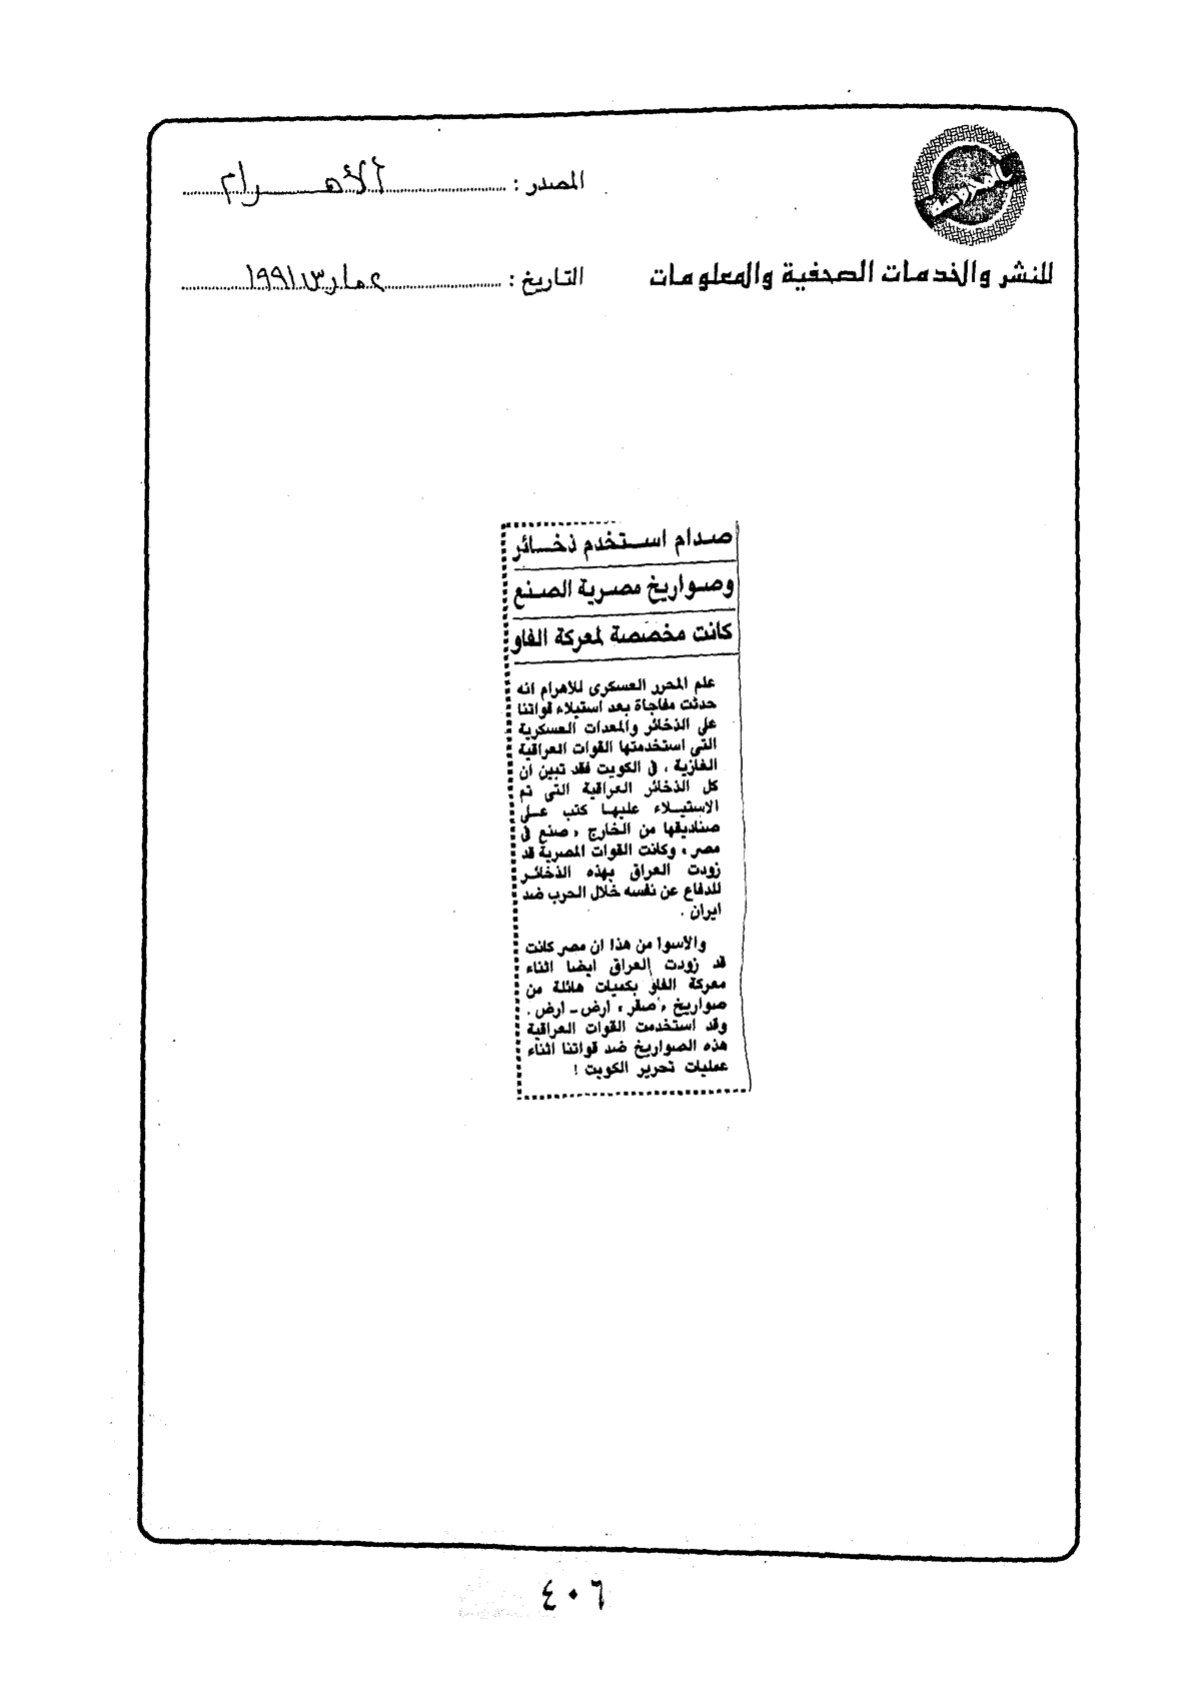 المصدر : الأهــرام
للنشر والخدمات الصحفية والمعلومات
التاريخ : ٤ مارس ١٩٩١
صدام استخدم ذخائر
وصواريخ مصرية الصنع
كانت مخصصة لمعركة الفاو
علم المحرر العسكرى للاهرام انه
حدثت مفاجاة بعد استيلاء قواتنا
على الذخائر والمعدات العسكرية
التى استخدمتها القوات العراقية
الغازية ، فى الكويت فقد تبين ان
كل الذخائر العراقية التى تم
الاستيلاء عليها كتب على
صناديقها من الخارج ، صنع فى
مصر ، وكانت القوات المصرية قد
زودت العراق بهذه الذخائر
للدفاع عن نفسه خلال الحرب ضد
ايران .
والأسوا من هذا ان مصر كانت
قد زودت العراق ايضا اثناء
معركة الفاو بكميات هائلة من
صواريخ ، صقر ، ارض - ارض .
وقد استخدمت القوات العراقية
هذه الصواريخ ضد قواتنا اثناء
عمليات تحرير الكويت !
٤٠٦